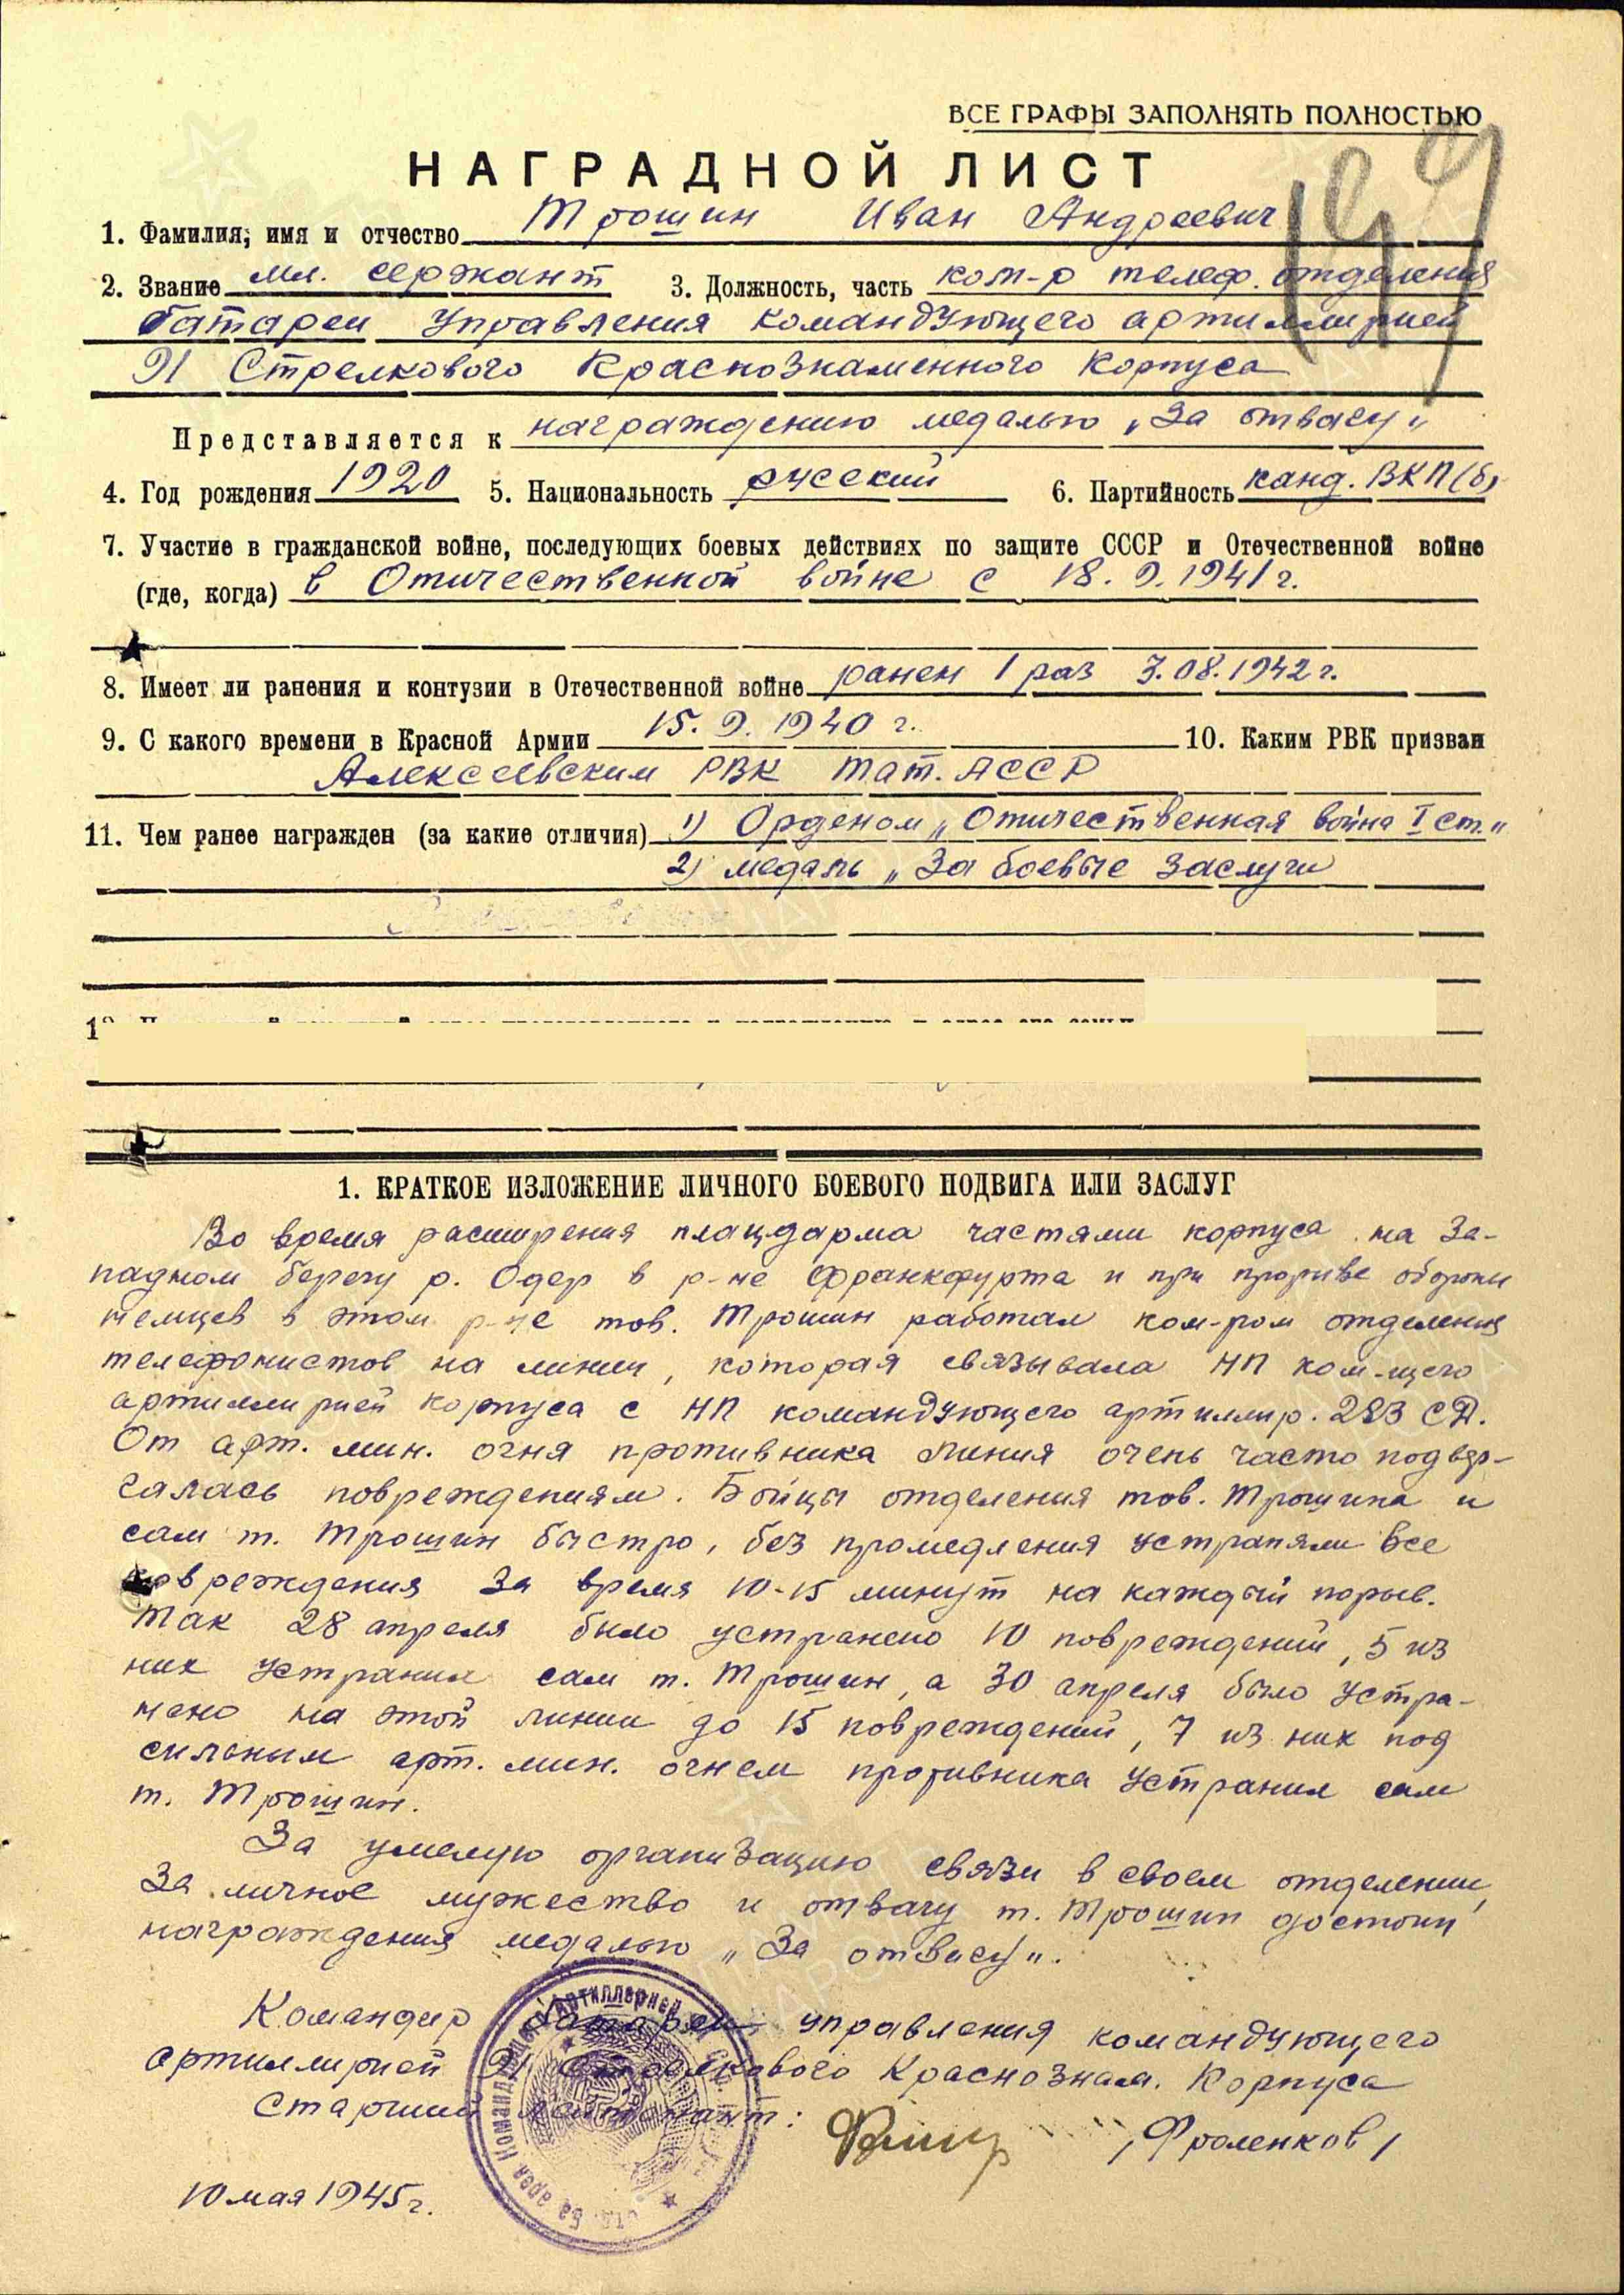 ВСЕ ГРАФЫ ЗАПОЛНЯТЬ ПОЛНОСТЬЮ
НАГРАДНОЙ ЛИСТ
1. Фамилия, имя и отчество Трошин Иван Андреевич
2. Звание мл. сержант 3. Должность, часть ком-р телеф. отделения
батареи управления командующего артиллирией
91 Стрелкового Краснознаменного Корпуса
Представляется к награждению медалью „За отвагу“
4. Год рождения 1920 5. Национальность русский 6. Партийность канд. ВКП(б)
7. Участие в гражданской войне, последующих боевых действиях по защите СССР и Отечественной войне
(где, когда) в Отичественной войне с 18.9.1941г.
8. Имеет ли ранения и контузии в Отечественной войне ранен 1 раз 3.08.1942г.
9. С какого времени в Красной Армии 15.9.1940 г. 10. Каким РВК призван
Алексеевским РВК Тат. АССР
11. Чем ранее награжден (за какие отличия) 1) Орденом „Отичественная война I ст.“
2) медаль „За боевые заслуги
1. КРАТКОЕ ИЗЛОЖЕНИЕ ЛИЧНОГО БОЕВОГО ПОДВИГА ИЛИ ЗАСЛУГ
Во время расширения плацдарма частями корпуса на за-
падном берегу р. Одер в р-не Франкфурта и при прорыве обороны
немцев в этом р-не тов. Трошин работал ком-ром отделения
телефонистов на линии, которая связывала НП ком-щего
артиллирией корпуса с НП командующего артиллир. 283 СД.
От арт. мин. огня противника линия очень часто подвер-
галась повреждениям. Бойцы отделения тов. Трошина и
сам т. Трошин быстро, без промедления устраняли все
повреждения за время 10-15 минут на каждый порыв.
Так 28 апреля было устранено 10 повреждений, 5 из
них устранил сам т. Трошин, а 30 апреля было устра-
нено на этой линии до 15 повреждений, 7 из них под
сильным арт. мин. огнем противника устранил сам
т. Трошин.
За умелую организацию связи в своем отделении,
за личное мужество и отвагу т. Трошин достоин
награждения медалью „За отвагу“.
Командир батареи управления командующего
артиллирией 91 Стрелкового Краснознам. Корпуса
Старший лейтенант: /Фроленков/
10 мая 1945г.